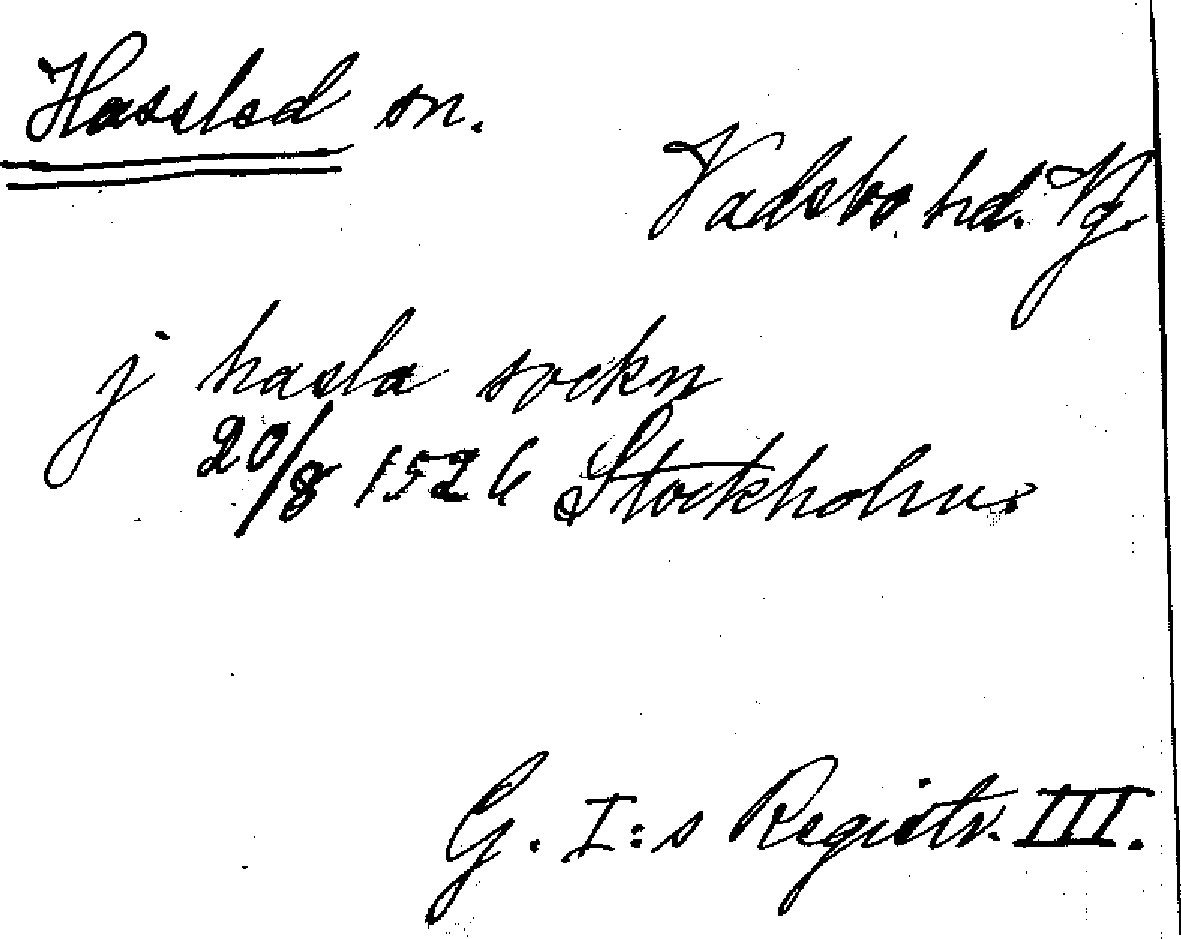 Hassled sn.
Vadsbo hd. Vg.
j hasla sockn
20/8 1526 Stockholm.
G. I:s Registr. III.